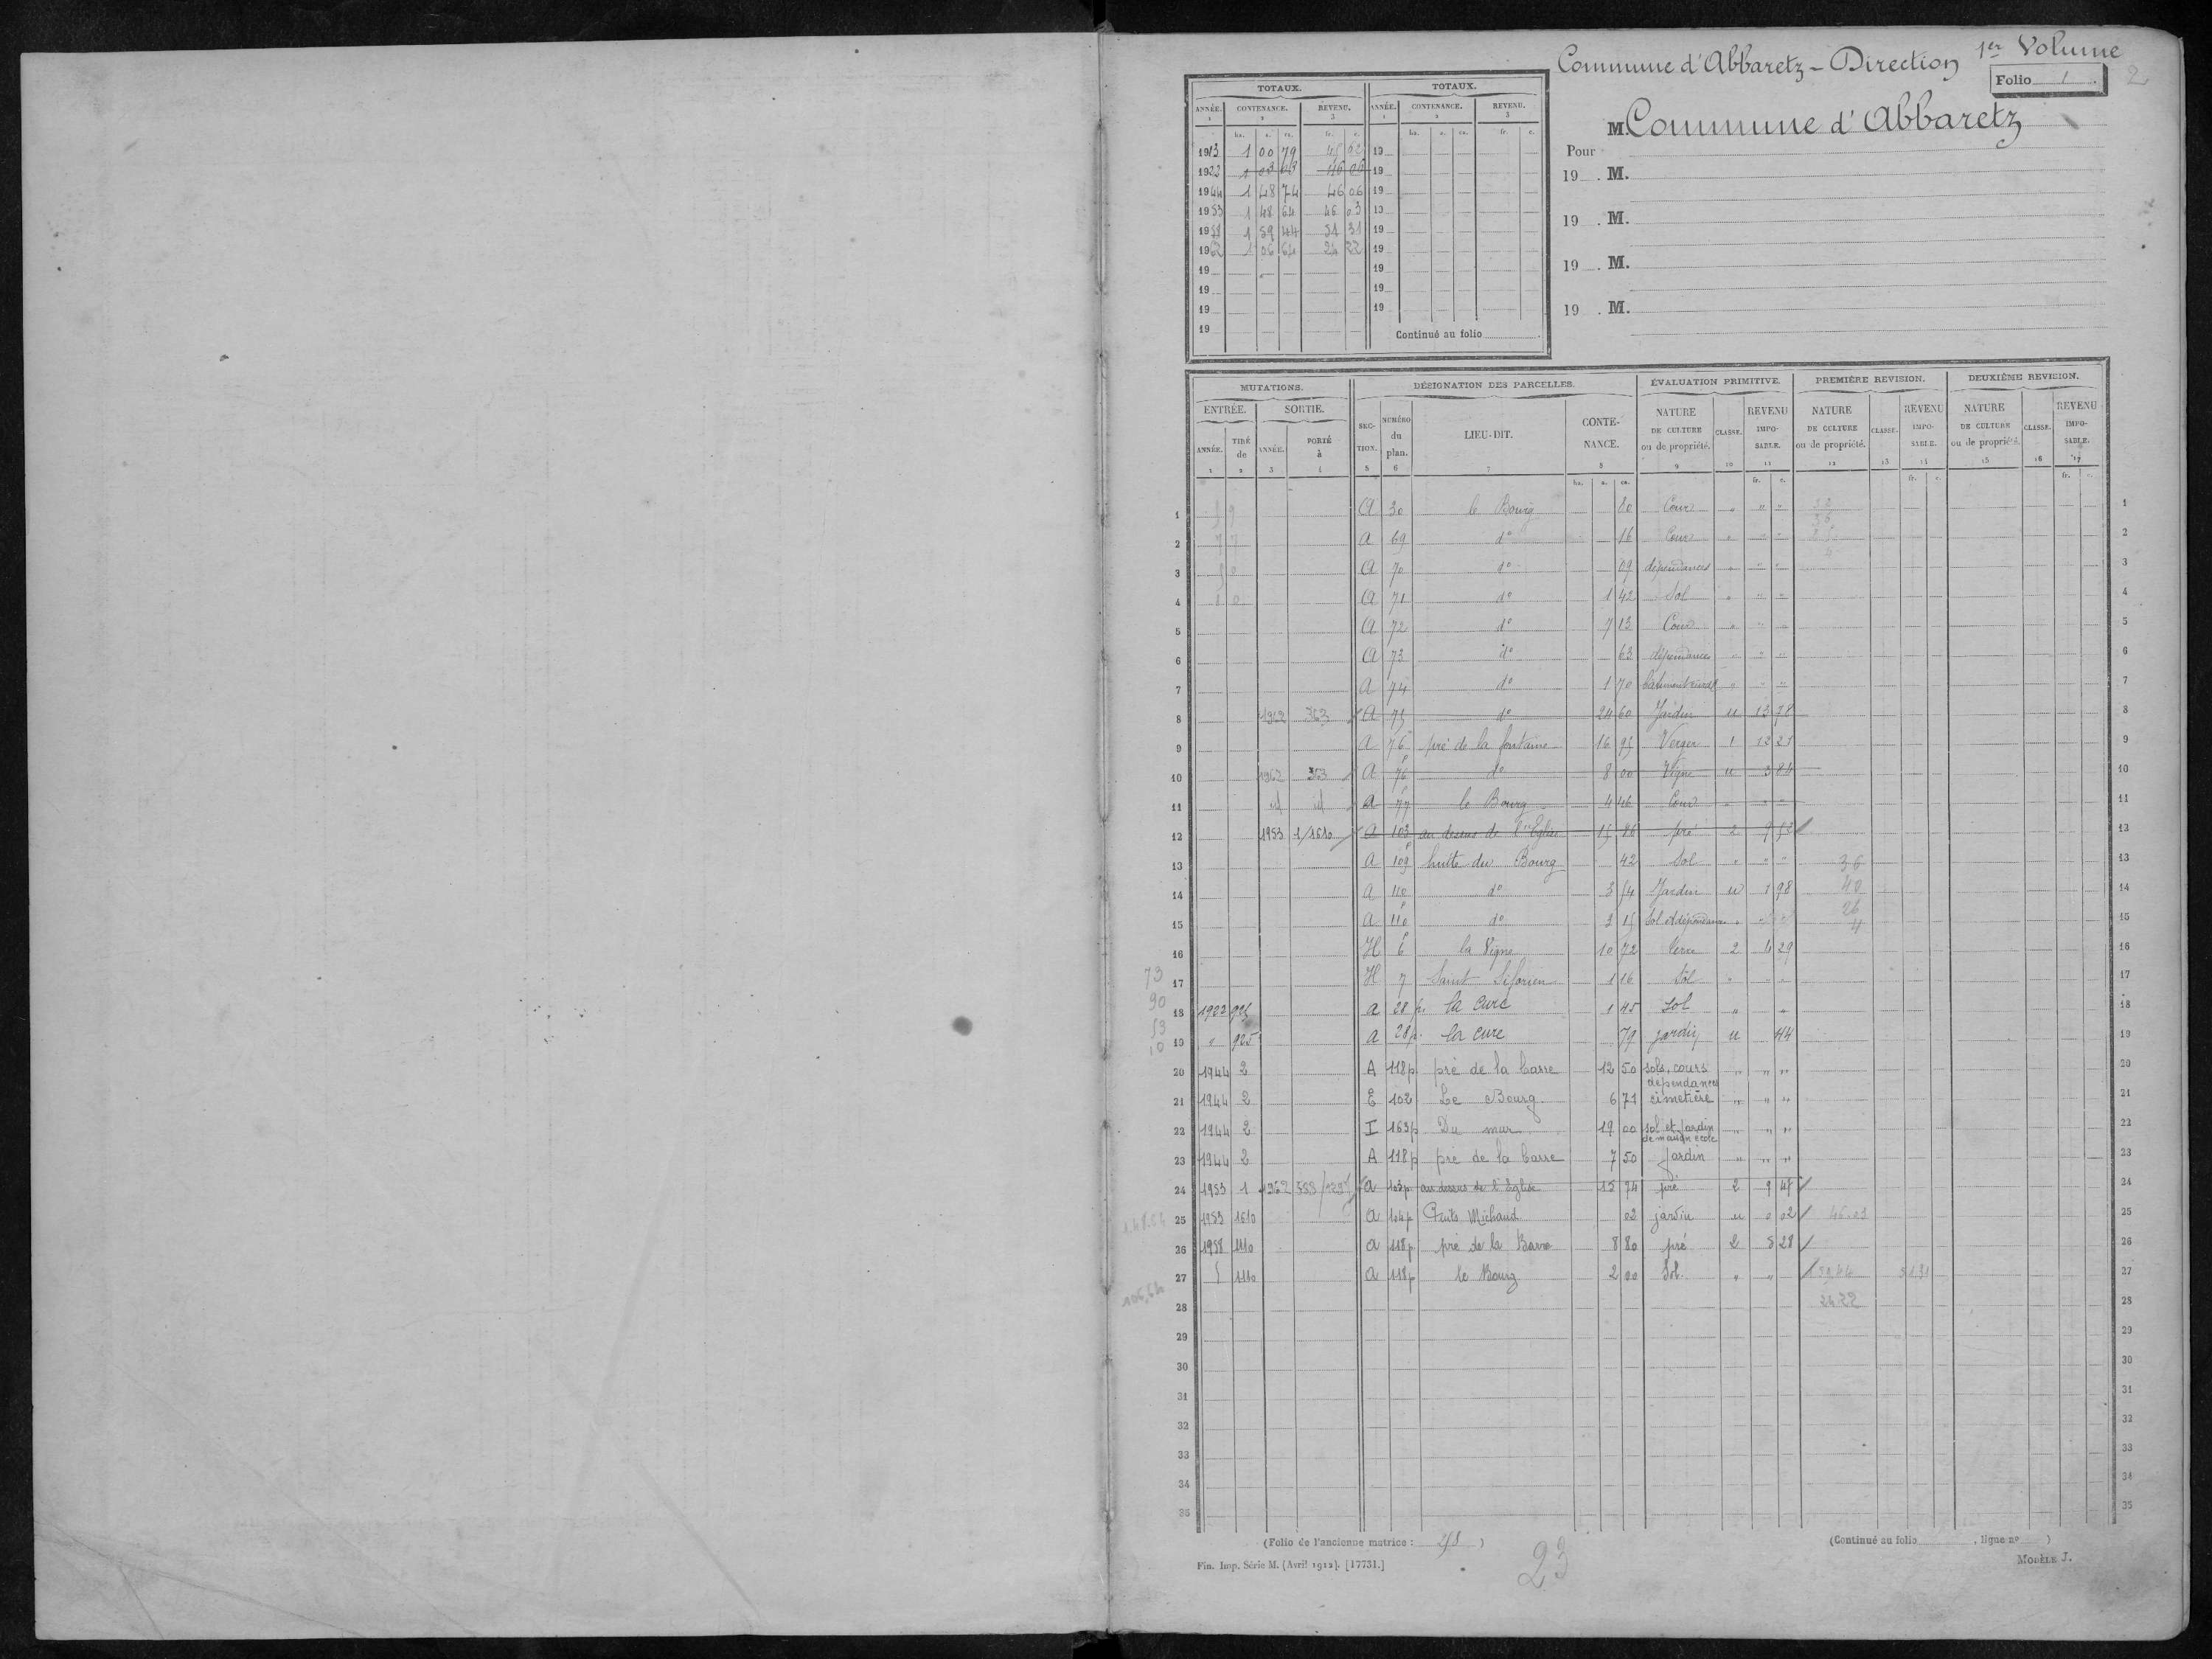 Commune d'Abbaretz - Direction 1er Volume
Folio 1 . 2
M. Commune d'Abbaretz
Pour
19 . M.
19 . M.
19 . M.
19 . M.
TOTAUX. TOTAUX.
ANNÉE. CONTENANCE. REVENU. ANNÉE. CONTENANCE. REVENU.
1 2 3 1 2 3
ha. a. ca. fr. c. ha. a. ca. fr. c.
1913 1 00 79 45 62 19
1922 1 03 03 46 06 19
1944 1 48 74 46 06 19
1953 1 48 64 46 03 19
1958 1 59 44 51 31 19
1962 1 06 64 24 22 19
19 19
19 19
19 19
19 Continué au folio
MUTATIONS. DÉSIGNATION DES PARCELLES. ÉVALUATION PRIMITIVE. PREMIÈRE REVISION. DEUXIÈME REVISION.
ENTRÉE. SORTIE. SECTION. NUMÉRO du plan. LIEU-DIT. CONTENANCE. NATURE DE CULTURE ou de propriété. CLASSE. REVENU IMPOSABLE. NATURE DE CULTURE ou de propriété. CLASSE. REVENU IMPOSABLE. NATURE DE CULTURE ou de propriété. CLASSE. REVENU IMPOSABLE.
ANNÉE. TIRÉ de ANNÉE. PORTÉ à
1 2 3 4 5 6 7 8 9 10 11 12 13 14 15 16 17
ha. a. ca. fr. c. fr. c. fr. c.
1 A 30 le Bourg 80 Cour " " " 1
2 A 69 d° 16 Cour " " " 2
3 A 70 d° 09 dépendances " " " 3
4 A 71 d° 1 42 Sol " " " 4
5 A 72 d° 7 13 Cour " " " 5
6 A 73 d° 63 dépendances " " " 6
7 A 74 d° 1 70 bâtiment rural " " " 7
8 1962 363 A 75 d° 24 60 Jardin u 13 78 8
9 A 76p pré de la fontaine 16 95 Verger 1 12 21 9
10 1962 363 A 76p d° 8 00 Vigne u 3 84 10
11 id id A 77p le Bourg 4 46 Cour " " " 11
12 1953 1/1610 A 103 au dessus de l'Eglise 15 86 pré 2 9 52 12
13 A 109p butte du Bourg 42 Sol " " " 36 13
14 A 110 d° 3 54 Jardin u 1 98 40 14
15 A 110p d° 3 15 Sol et dépendances " " 26 15
4
16 H 6p la Vigne 10 72 terre 2 4 29 16
73 17 H 7 Saint 1 16 Sol " " " 17
90 18 1922 925 a 28 p. la cure 1 45 sol " " 18
53 19 " 925 a 28p. la cure 79 jardin u 44 19
10
20 1944 2 A 118p pré de la barre 12 50 sols, cours dépendances " " " 20
21 1944 2 E 102 Le Bourg 6 71 cimetière " " " 21
22 1944 2 I 163p Du mur 19 00 sol et jardin de maison école " " " 22
23 1944 2 A 118p pré de la barre 7 50 jardin " " " 23
24 1953 1 1962 a 103p au dessus de l'Eglise 15 74 pré 2 9 45 24
148.64 25 1953 1610 a 104p Puits Michaud 02 jardin u 0 02 46.03 25
26 1958 1110 a 118p. pré de la Barre 8 80 pré 2 5 28 26
27 1110 a 118p le Bourg 2 00 Sol " " 159,44 51.31 27
106,64 28 24 22 28
29 29
30 30
31 31
32 32
33 33
34 34
35 35
(Folio de l'ancienne matrice : 258 ) (Continué au folio , ligne n° )
Fin. Imp. Série M. (Avril 1912). [17731.] 23 MODÈLE J.